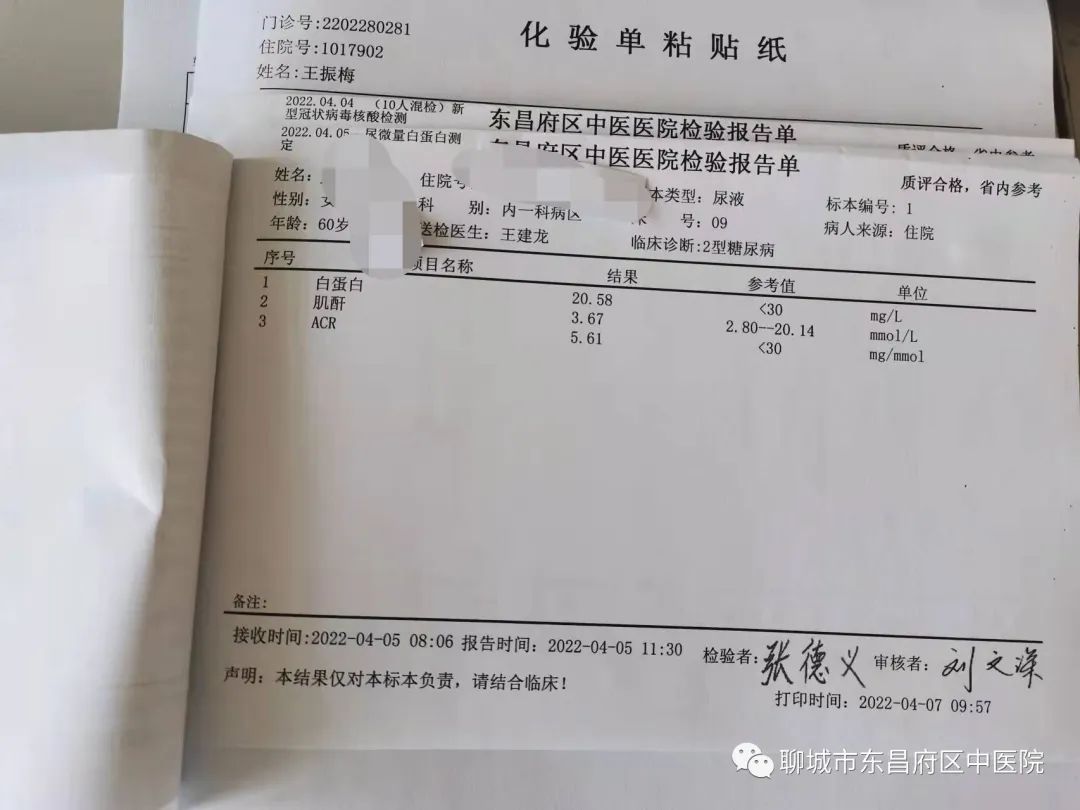 门诊号:2202280281
化验单粘贴纸
住院号:1017902
姓名:王振梅
2022.04.04 (10人混检)新
型冠状病毒核酸检测
东昌府区中医医院检验报告单
2022.04.05 尿微量白蛋白测
定
质评合格,省内参考
东昌府区中医医院检验报告单
质评合格,省内参考
姓名:
住院号
本类型:尿液
标本编号:1
性别:女
科 别:内一科病区
号:09
病人来源:住院
年龄:60岁
送检医生:王建龙
临床诊断:2型糖尿病
序号 项目名称 结果 参考值 单位
1 白蛋白 20.58 <30 mg/L
2 肌酐 3.67 2.80--20.14 mmol/L
3 ACR 5.61 <30 mg/mmol
备注:
接收时间:2022-04-05 08:06 报告时间:2022-04-05 11:30 检验者:张德义 审核者:刘文深
声明:本结果仅对本标本负责,请结合临床!
打印时间:2022-04-07 09:57
聊城市东昌府区中医院